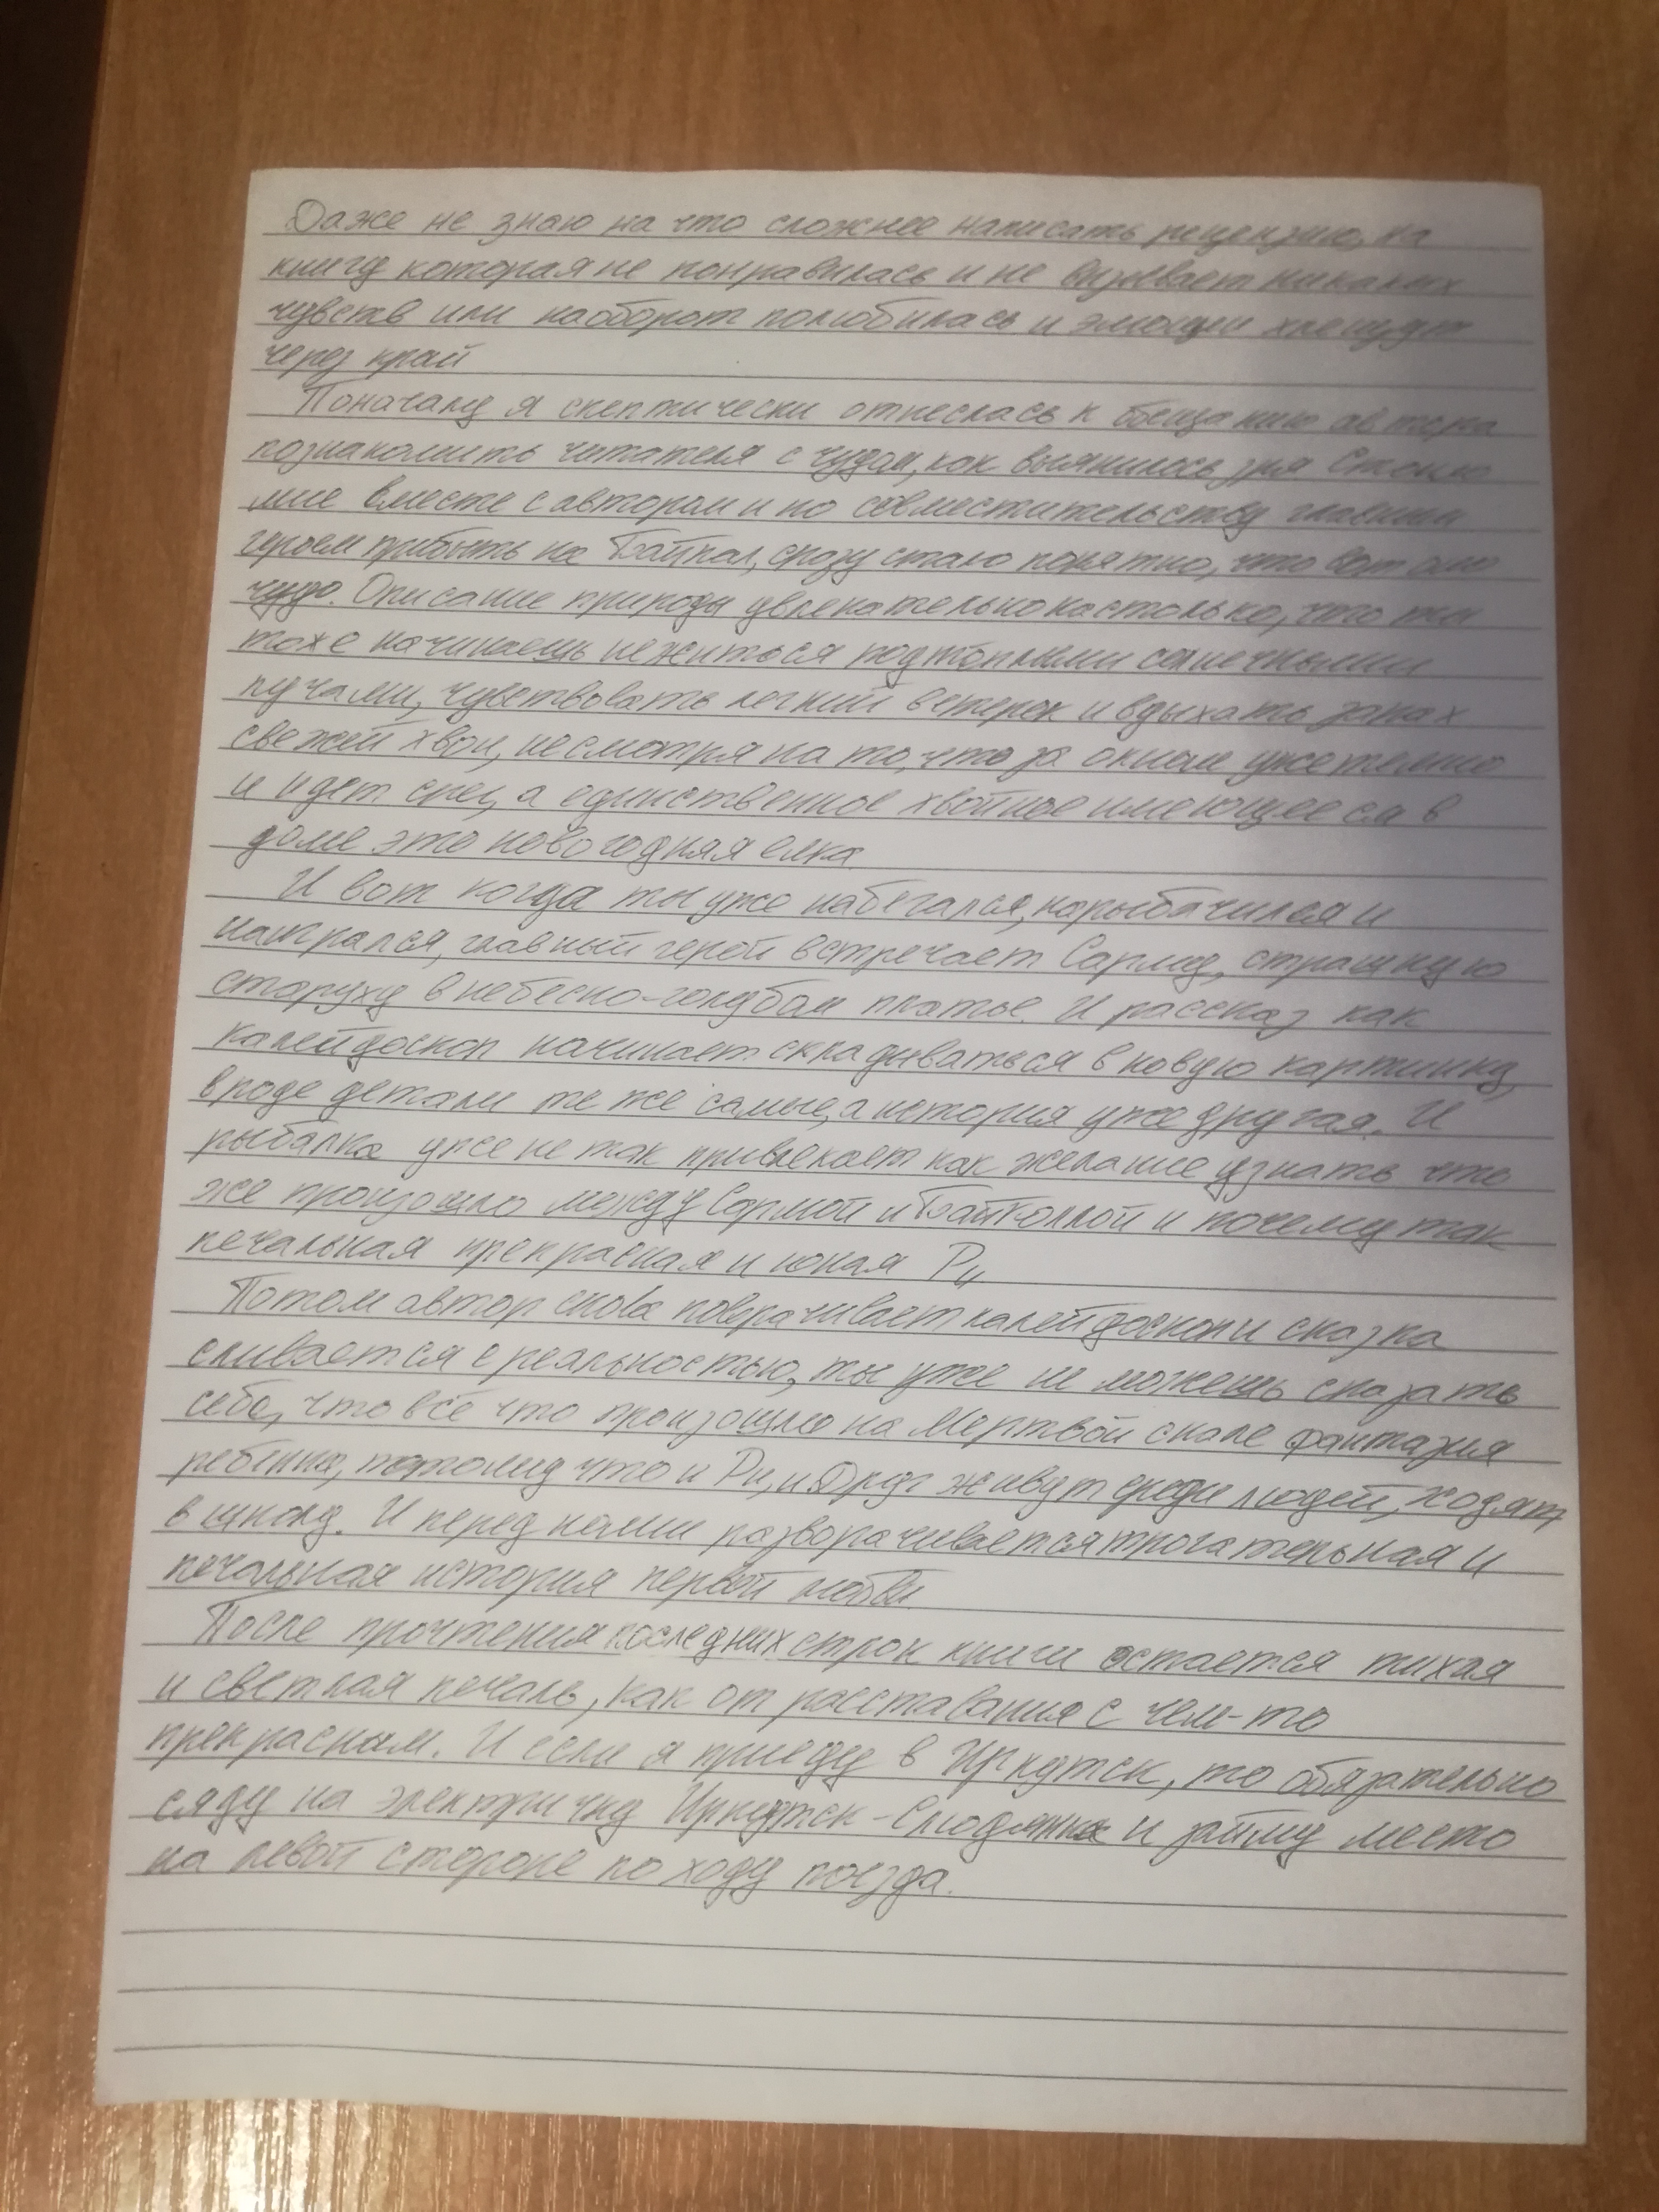 Даже не знаю на что сложнее написать рецензию, на
книгу которая не понравилась и не вызывает никаких
чувств или наоборот полюбилась и эмоции хлещут
через край
Поначалу я скептически отнеслась к обещанию автора
познакомить читателя с чудом, как выяснилось зря. Стоило
мне вместе с автором и по совместительству главным
героем прибыть на Байкал, сразу стало понятно, что вот оно
чудо. Описание природы увлекательно настолько, что ты
тоже начинаешь нежиться под теплыми солнечными
лучами, чувствовать легкий ветерок и вдыхать запах
свежей хвои, несмотря на то, что за окном уже темно
и идет снег, а единственное хвойное имеющееся в
доме это новогодняя елка
И вот когда ты уже набегался, нарыбачился и
наигрался, главный герой встречает Сарму, страшную
старуху в небесно-голубом платье. И рассказ как
калейдоскоп начинает складываться в новую картинку,
вроде детали те же самые, а история уже другая. И
рыбалка уже не так привлекает как желание узнать что
же произошло между Сармой и Байколлой и почему так
печальная прекрасная и юная Ри
Потом автор снова поворачивает калейдоскоп и сказка
сливается с реальностью, ты уже не можешь сказать
себе, что всё что произошло на Мертвой скале фантазия
ребёнка, потому что и Ри, и Друг живут среди людей, ходят
в школу. И перед нами разворачивается трогательная и
печальная история первой любви
После прочтения последних строк книги остается тихая
и светлая печаль, как от расставания с чем-то
прекрасным. И если я приеду в Иркутск, то обязательно
сяду на электричку Иркутск-Слюдянка и займу место
на левой стороне по ходу поезда.